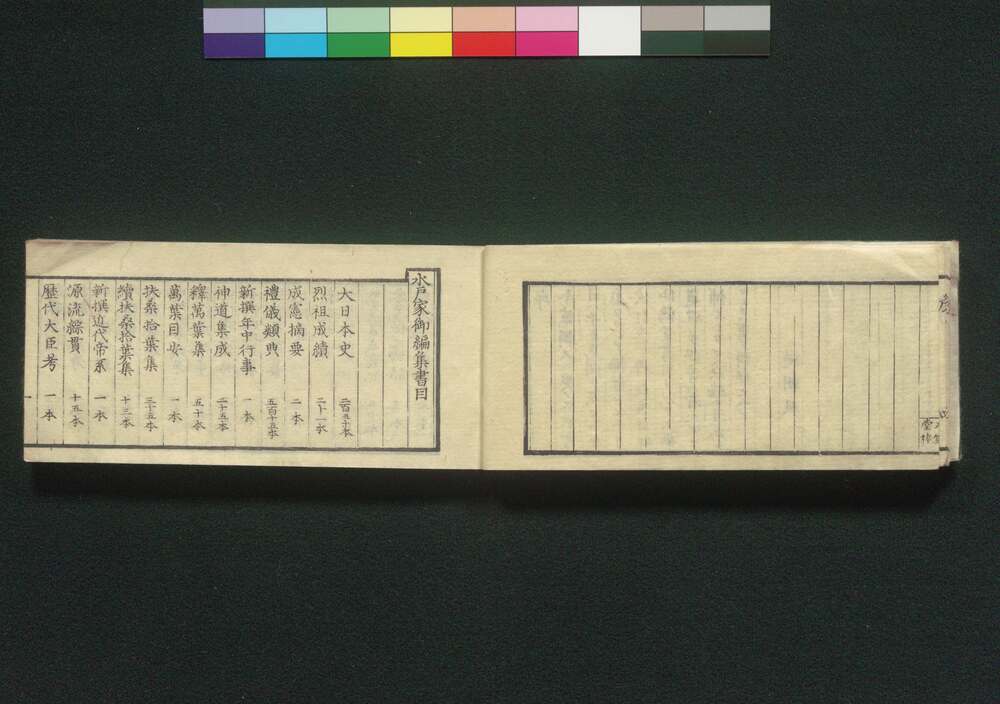 序
水戸家御編集書目
大日本史 二百五十本
烈祖成績 二十一本
成憲摘要 二本
禮儀類典 五百十五本
新撰年中行事 一本
神道集成 二十五本
釋萬葉集 五十本
萬葉目安 一本
扶桑拾葉集 三十五本
續扶桑拾葉集 十三本
新撰近代帝系 一本
源流綜貫 十五本
歴代大臣考 一本